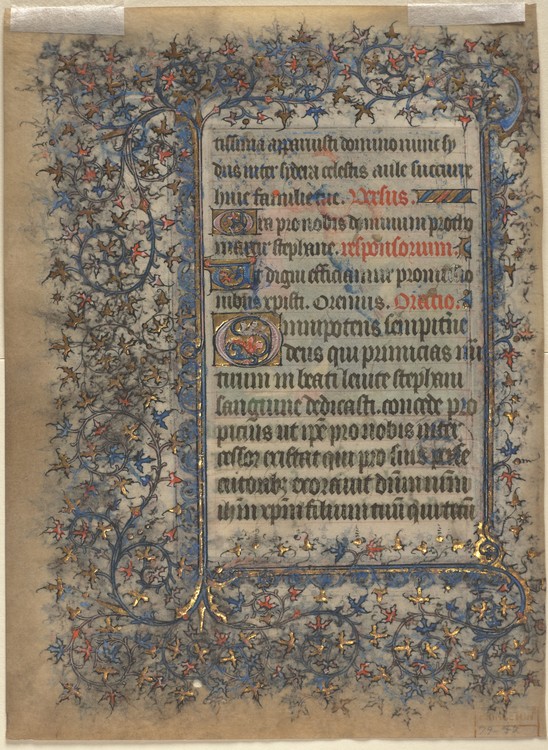 tissima apparuisti domino nunc sy
dus inter sydera celestis aule succurre
huic familie tue. Versus.
Ora pro nobis dominum protho
martir stephane. responsorium.
Ut digni efficiamur promissio
nibus xpisti. Oremus. Oratio.
Omnipotens sempit'ne
deus qui primicias mar
tirum in beati levite stephani
sanguine dedicasti. concede pro
picius ut ipe pro nobis inter
cessor existat qui pro suis perse
cutoribz exoravit dnm nrm
ihm xpm filium tuu qui tecum